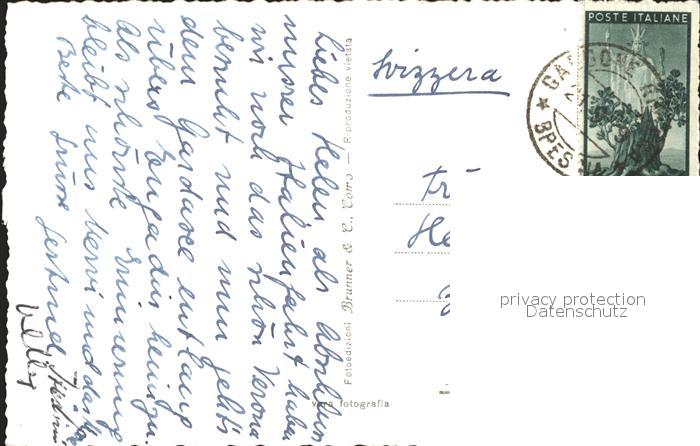 Liebes Helen als Abschluss
unserer Italienfahrt haben
wir noch das schön Verona
besucht und nun gehts
dem Gardasee entlang
übers Engadin heimzu
Als schönste Erinnerung
bleibt uns
Beste Grüsse
Fotoedizioni Brunner & C., Como — Riproduzione vietata
vera fotografia
Svizzera
He
POSTE ITALIANE
GARDONE
BRESCIA
privacy protection
Datenschutz